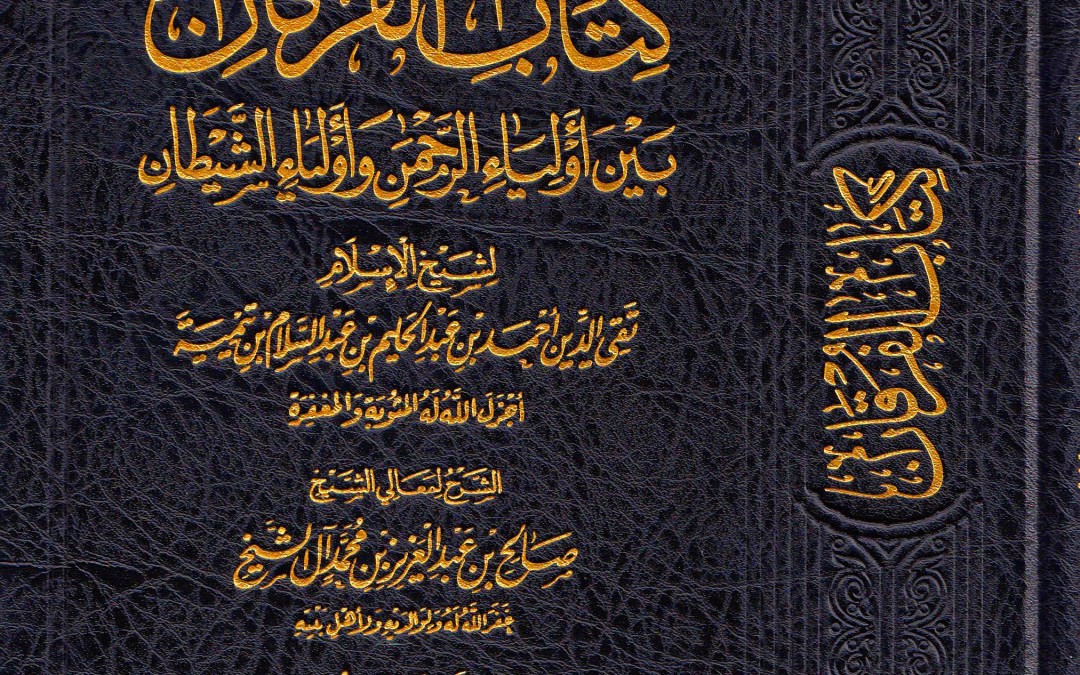 كتاب الفرقان
بَيْنَ أَوْلِيَاءِ الرَّحْمٰنِ وَأَوْلِيَاءِ الشَّيْطَانِ
لِشَيْخِ الْإِسْلَامِ
تَقِيِّ الدِّينِ أَحْمَدَ بْنِ عَبْدِ الْحَلِيمِ بْنِ عَبْدِ السَّلَامِ بْنِ تَيْمِيَّةَ
أَجْزَلَ اللَّهُ لَهُ الْمَثُوبَةَ وَالْمَغْفِرَةَ
الشَّرْحُ لِمَعَالِي الشَّيْخِ
صَالِحِ بْنِ عَبْدِ الْعَزِيزِ بْنِ مُحَمَّدٍ آلِ الشَّيْخِ
غَفَرَ اللَّهُ لَهُ وَلِوَالِدَيْهِ وَلِأَهْلِ بَيْتِهِ
كتاب الفرقان